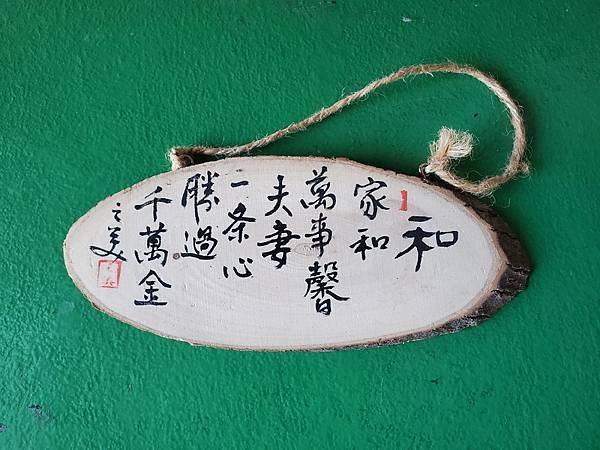 和
家和
萬事馨
夫妻
一条心
勝過
千萬金
之美